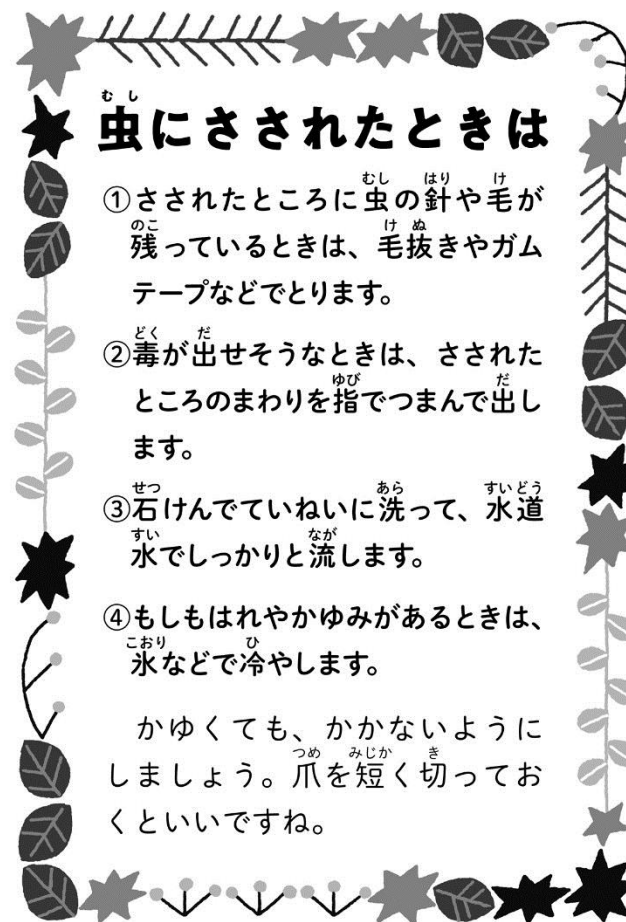 虫にさされたときは
①さされたところに虫の針や毛が
残っているときは、毛抜きやガム
テープなどでとります。
②毒が出せそうなときは、さされた
ところのまわりを指でつまんで出し
ます。
③石けんでていねいに洗って、水道
水でしっかりと流します。
④もしもはれやかゆみがあるときは、
氷などで冷やします。
かゆくても、かかないように
しましょう。爪を短く切ってお
くといいですね。